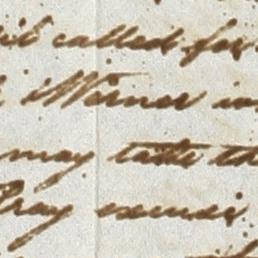 called for
Werner
may take th
Pray excuse